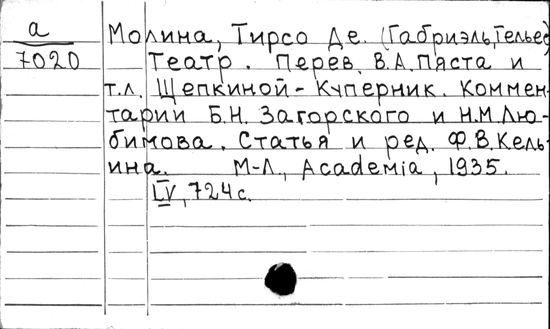 а
7020
Молина, Тирсо Де. (Габриэль, Тельес)
Театр. Перев. В.А. Пяста и
т.л. Щепкиной-Куперник. Коммен-
тарии Б.Н. Загорского и Н.М. Лю-
бимова. Статья и ред. Ф.В. Кель-
ина. М-Л., Academia, 1935.
LV, 724 с.